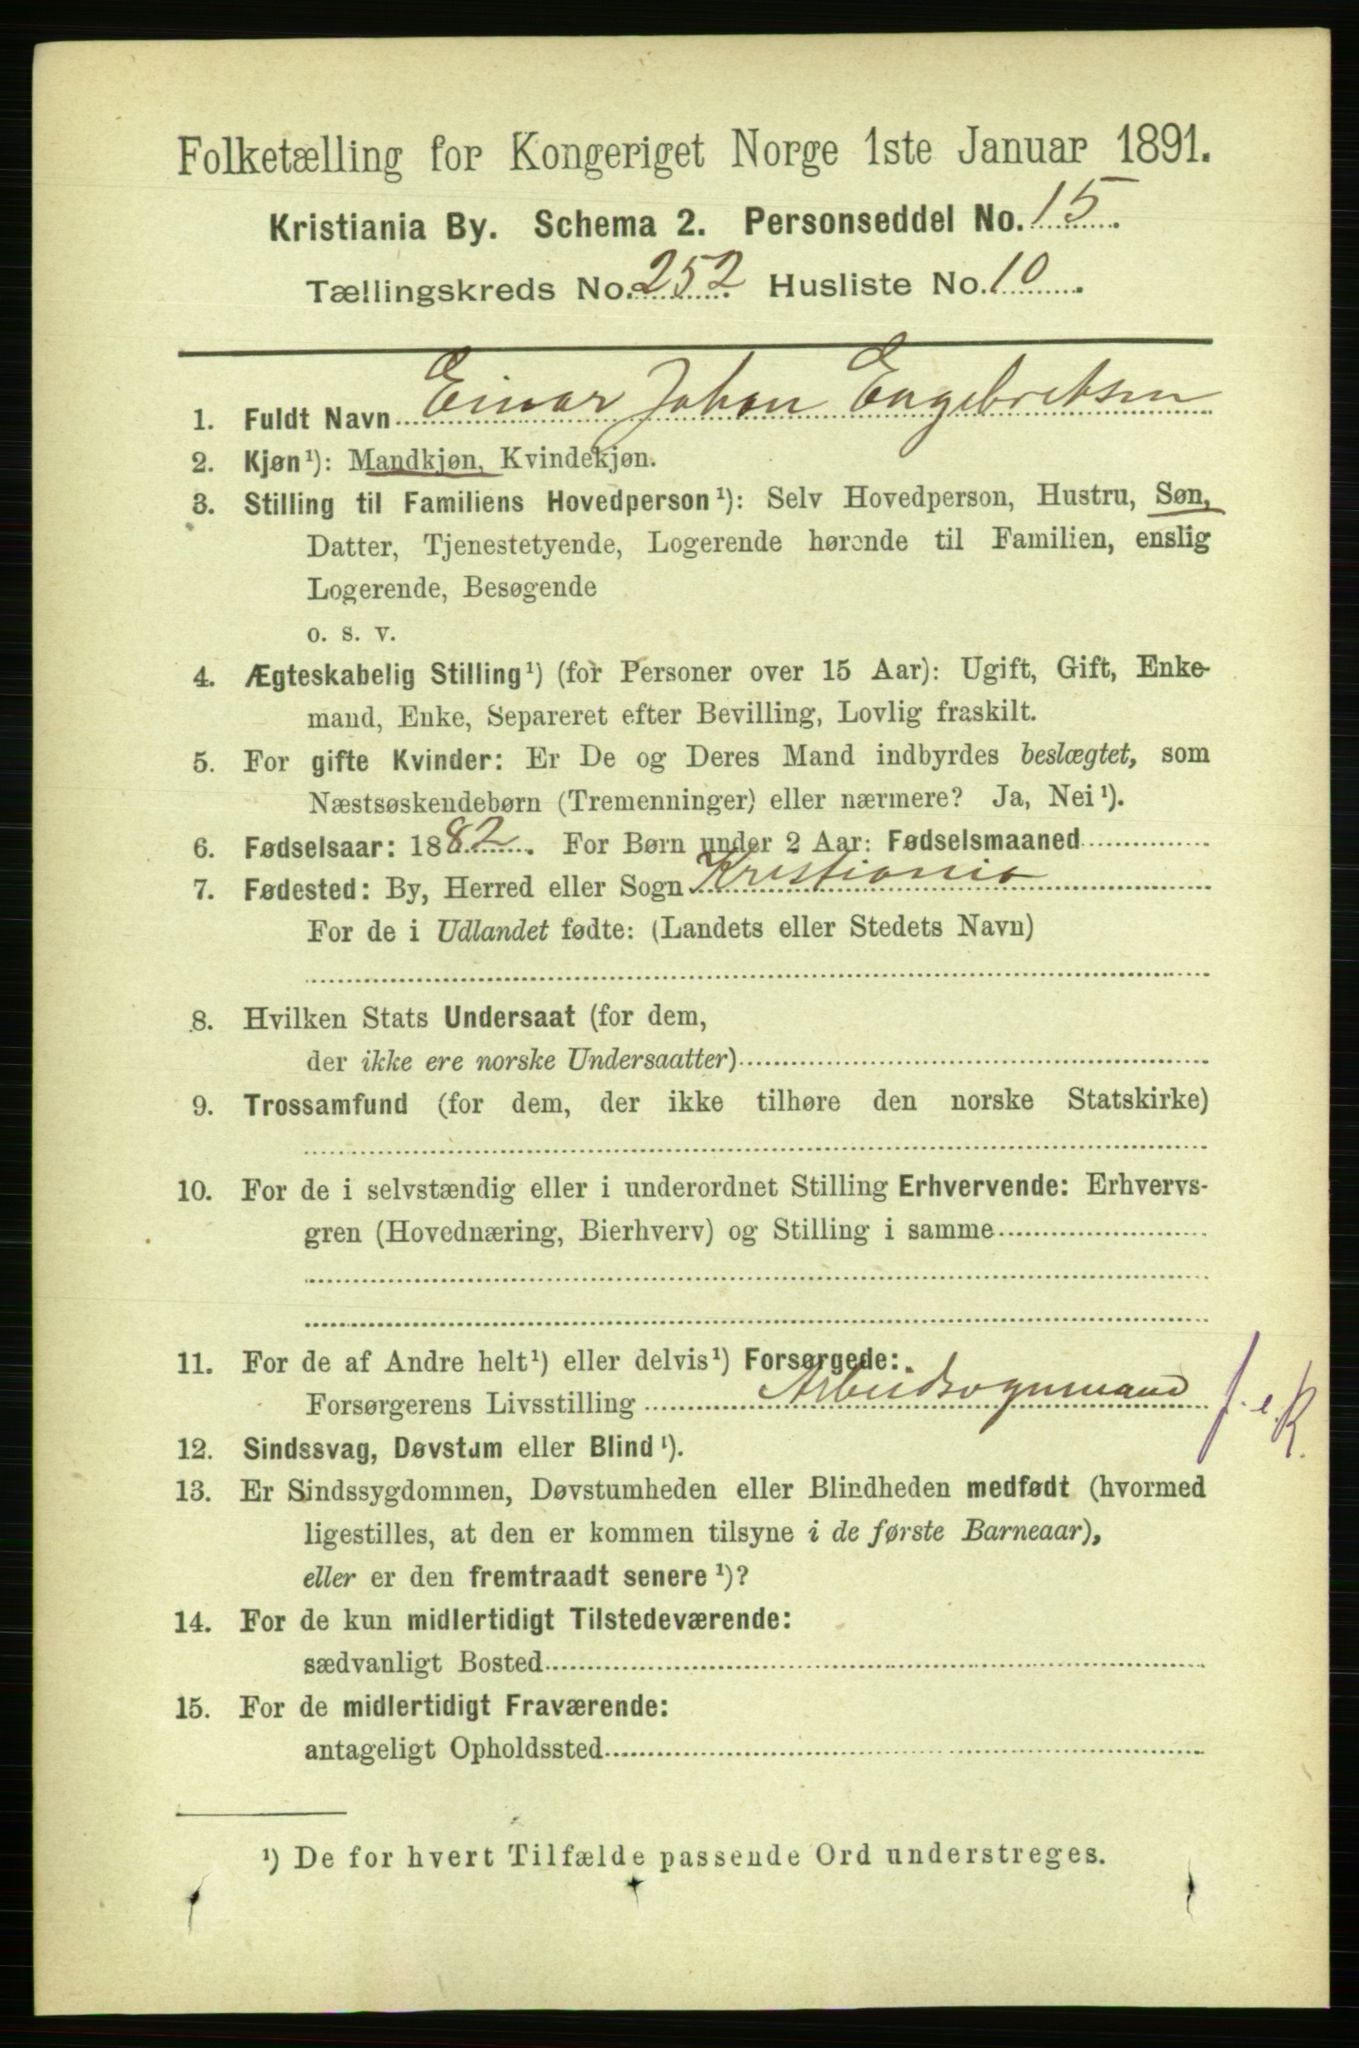 Folketælling for Kongeriget Norge 1ste Januar 1891.
Kristiania By. Schema 2. Personseddel No. 15.
Tællingskreds No. 252. Husliste No. 10.
1. Fuldt Navn Einar Johan Engebretsen
2. Kjøn¹): Mandkjøn, Kvindekjøn.
3. Stilling til Familiens Hovedperson¹): Selv Hovedperson, Hustru, Søn,
Datter, Tjenestetyende, Logerende hørende til Familien, enslig
Logerende, Besøgende
o. s. v.
4. Ægteskabelig Stilling¹) (for Personer over 15 Aar): Ugift, Gift, Enke-
mand, Enke, Separeret efter Bevilling, Lovlig fraskilt.
5. For gifte Kvinder: Er De og Deres Mand indbyrdes beslægtet, som
Næstsøskendebørn (Tremenninger) eller nærmere? Ja, Nei¹).
6. Fødselsaar: 1882. For Børn under 2 Aar: Fødselsmaaned
7. Fødested: By, Herred eller Sogn Kristiania
For de i Udlandet fødte: (Landets eller Stedets Navn)
8. Hvilken Stats Undersaat (for dem,
der ikke ere norske Undersaatter)
9. Trossamfund (for dem, der ikke tilhøre den norske Statskirke)
10. For de i selvstændig eller i underordnet Stilling Erhvervende: Erhvervs-
gren (Hovednæring, Bierhverv) og Stilling i samme
11. For de af Andre helt¹) eller delvis¹) Forsørgede:
Forsørgerens Livsstilling Arbeidsvognmand f. e. R.
12. Sindssvag, Døvstum eller Blind¹).
13. Er Sindssygdommen, Døvstumheden eller Blindheden medfødt (hvormed
ligestilles, at den er kommen tilsyne i de første Barneaar),
eller er den fremtraadt senere¹)?
14. For de kun midlertidigt Tilstedeværende:
sædvanligt Bosted
15. For de midlertidigt Fraværende:
antageligt Opholdssted
¹) De for hvert Tilfælde passende Ord understreges.